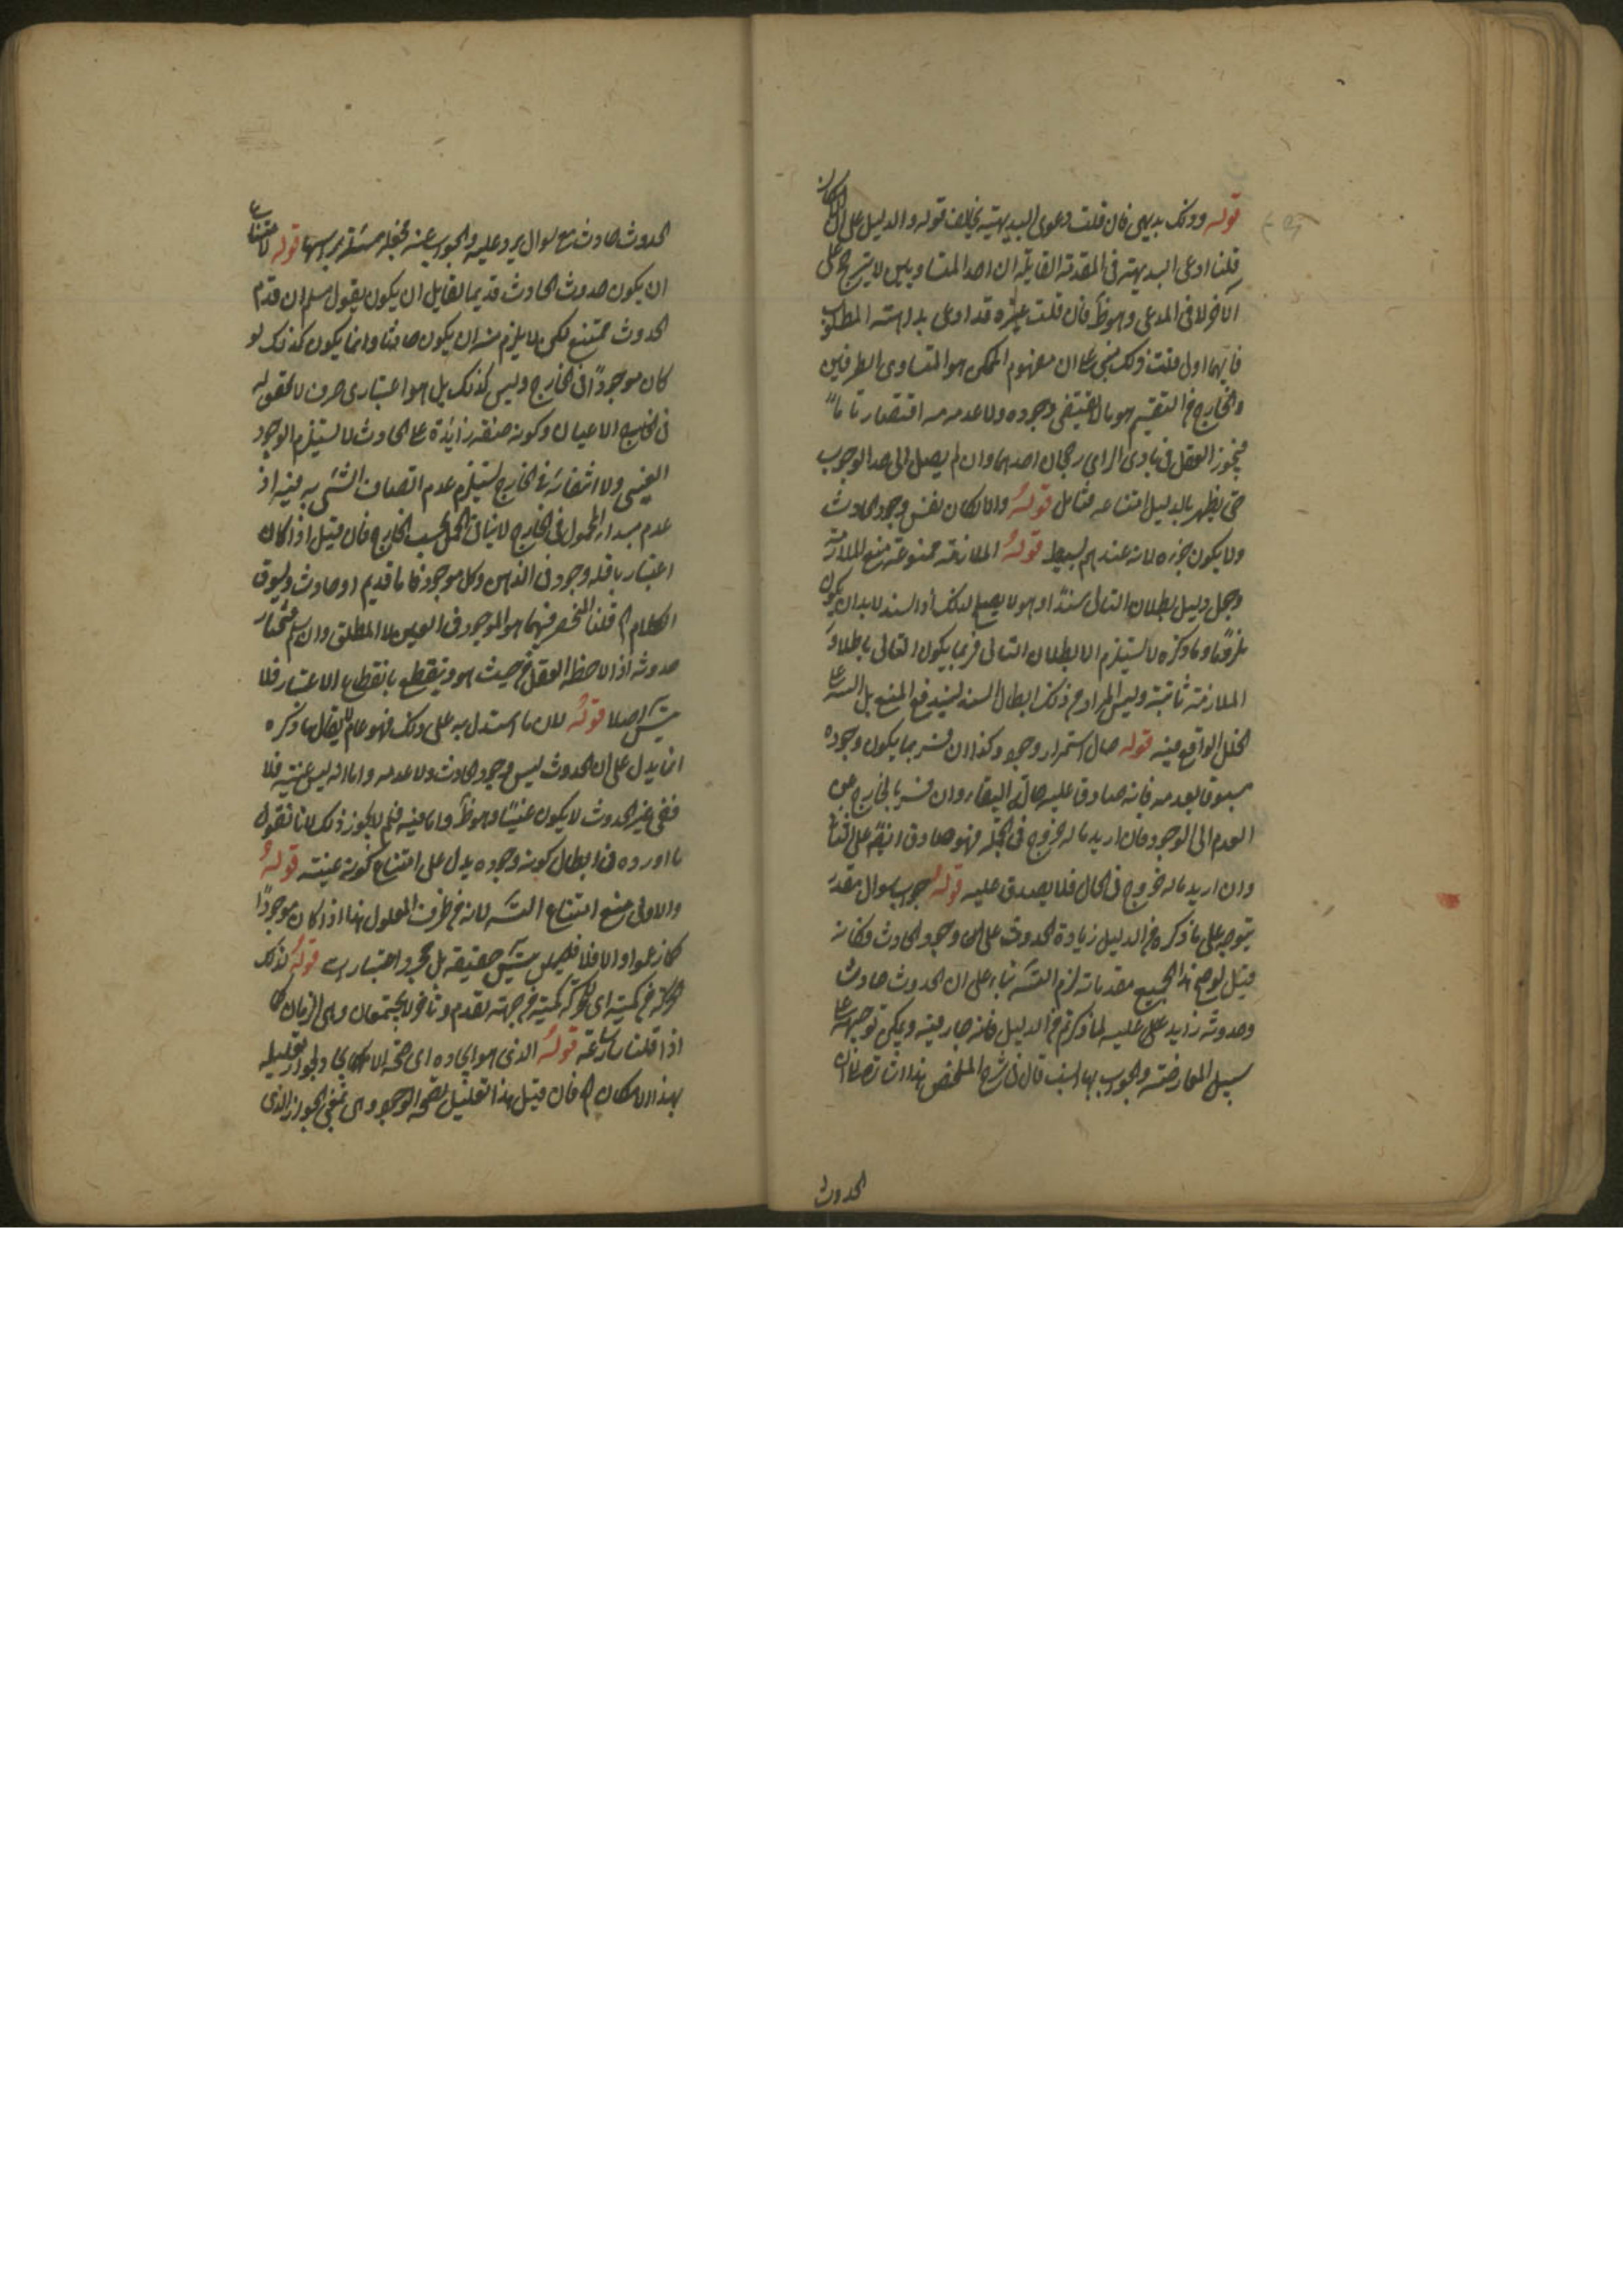 قوله وذلك بديهي فان قلت دعوى البديهية يخالف قوله والدليل على الامكان
قلنا ادعى البديهته في المقدمة القايلة ان احد المتساويين لا يترجح على
الآخر لا في المدعى وهو ظ فان قلت غيره قد ادعى بداهته المطلوب
فايهما اولى قلت ذلك مبني على ان مفهوم الممكن هو المتساوى الطرفين
والخارج من التقسيم هو ما لا يقتضى وجوده ولا عدمه اقتضاء تاما
فيجوز العقل في بادى الراى رجحان احدهما وان لم يصل الى حد الوجوب
حتى يظهر بالدليل امتناعه فتامل قوله والا لكان نفس وجود الحادث
ولا يكون جزءه لانه عندهم بسيط قوله الملازمة ممنوعة منع الملازمة
وجعل دليل بطلان التالى سندا وهو لا يصلح لذلك اذ السند لا بد ان يكون
ملزوما وما ذكره لا يستلزم الا بطلان التالى فربما يكون التالى باطلا و
الملازمة ثابتة وليس المراد من ذلك ابطال السند ليندفع المنع بل التنبيه على
الخلل الواقع فيه قوله حال استمرار وجوده وكذا ان فسر بما يكون وجوده
مسبوقا بعدمه فانه صادق عليه حال البقاء وان فسر بالخارج عن
العدم الى الوجود فان اريد ما له خروج في الجملة فهو صادق ايضا على الباقى
وان اريد ما له خروج في الحال فلا يصدق عليه قوله جواب سوال مقدر
يتوجه على ما ذكره من الدليل زيادة الحدوث على وجود الحادث فكانه
قيل لو صح هذا بجميع مقدماته لزم التسلسل بناء على ان الحدوث حادث
وحدوثه زايد عليه لما ذكرتم من الدليل فانه جار فيه ويمكن توجيهه على
سبيل المعارضة والجواب بها انسب قال في شرح الملخص
الحدوث
الحدوث حادث مع سوال يرد عليه والجواب عنه فجعله مسئلة براسها قوله لامتناع
ان يكون حدوث الحادث قديما لقايل ان يقول مسلم ان قدم
الحدوث ممتنع لكن لا يلزم منه ان يكون حادثا وانما يكون كذلك لو
كان موجودا في الخارج وليس كذلك بل هو اعتبارى صرف لا تحقق له
في الاعيان وكونه صفة زائدة على الحادث لا يستلزم الوجود
العينى ولا انتفائه في الخارج يستلزم عدم اتصاف الشئ به فيه اذ
عدم مبدا المحمول في الخارج لا ينافى الحمل بحسب الخارج فان قيل اذا كان
اعتباريا فله وجود في الذهن وكل موجود فاما قديم او حادث ونسوق
الكلام قلنا المنحصر فيهما هو الموجود في العين لا المطلق وان سلم فنختار
حدوثه اذا لاحظه العقل من حيث هو وينقطع بانقطاع الاعتبار فلا
تسلسل اصلا قوله لان ما استدل به على ذلك فهو عام لا يقال ما ذكره
انما يدل على ان الحدوث ليس وجود الحادث ولا عدمه واما انه ليس عينه فلا
ففى غير الحدوث لا يكون عينا وهو ظ واما فيه فلم لا يجوز ذلك لانا نقول
ما اورده في ابطال كونه وجوده يدل على امتناع كونه عينه قوله
والاولى منع امتناع التسلسل لانه من طرف المعلول هذا اذا كان موجودا
كما زعموا والا فلا تسلسل حقيقة بل مجرد اعتبارات قوله كذلك
الحركة من كميته اى للحركة كمية من جهة تقدم وتاخر لا يجتمعان وهى الزمان كما
اذا قلنا ساعة قوله الذى هو ايجاده اى صحة الايجاد وتعليله
بهذا الامكان فان قيل هذا تعليل لصحة الوجود وهى بمعنى الجواز الذى